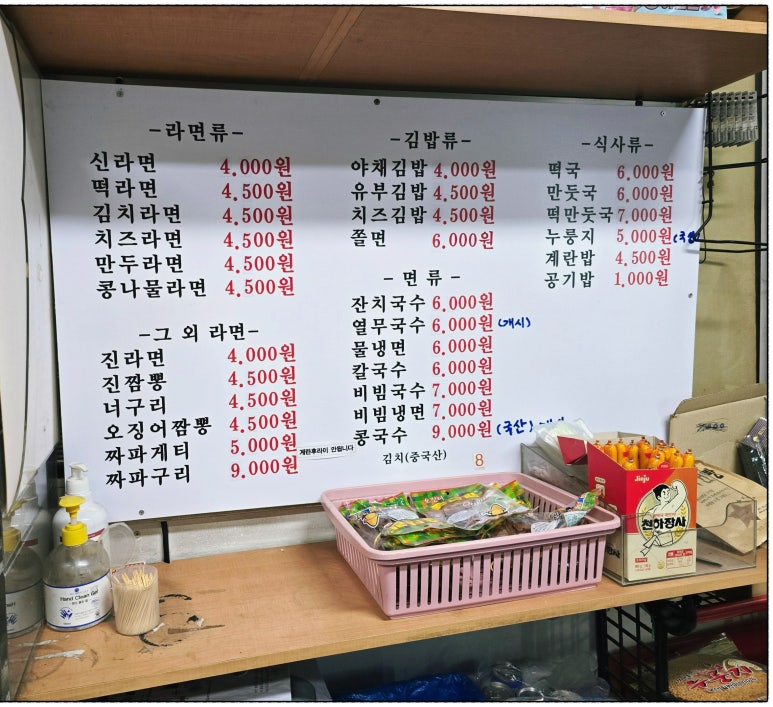 -라면류-
신라면 4.000원
떡라면 4.500원
김치라면 4.500원
치즈라면 4.500원
만두라면 4.500원
콩나물라면 4.500원
-그 외 라면-
진라면 4.000원
진짬뽕 4.500원
너구리 4.500원
오징어짬뽕 4.500원
짜파게티 5.000원
계란후라이 안됩니다
짜파구리 9.000원
-김밥류-
야채김밥 4.000원
유부김밥 4.500원
치즈김밥 4.500원
쫄면 6.000원
- 면 류 -
잔치국수 6.000원
열무국수 6.000원 (개시)
물냉면 6.000원
칼국수 6.000원
비빔국수 7.000원
비빔냉면 7.000원
콩국수 9.000원 (국산)
김치(중국산)
8
-식사류-
떡국 6.000원
만둣국 6.000원
떡만둣국 7.000원
누룽지 5.000원 (국산)
계란밥 4.500원
공기밥 1.000원
Jinju
천하장사
Hand Clean Gel